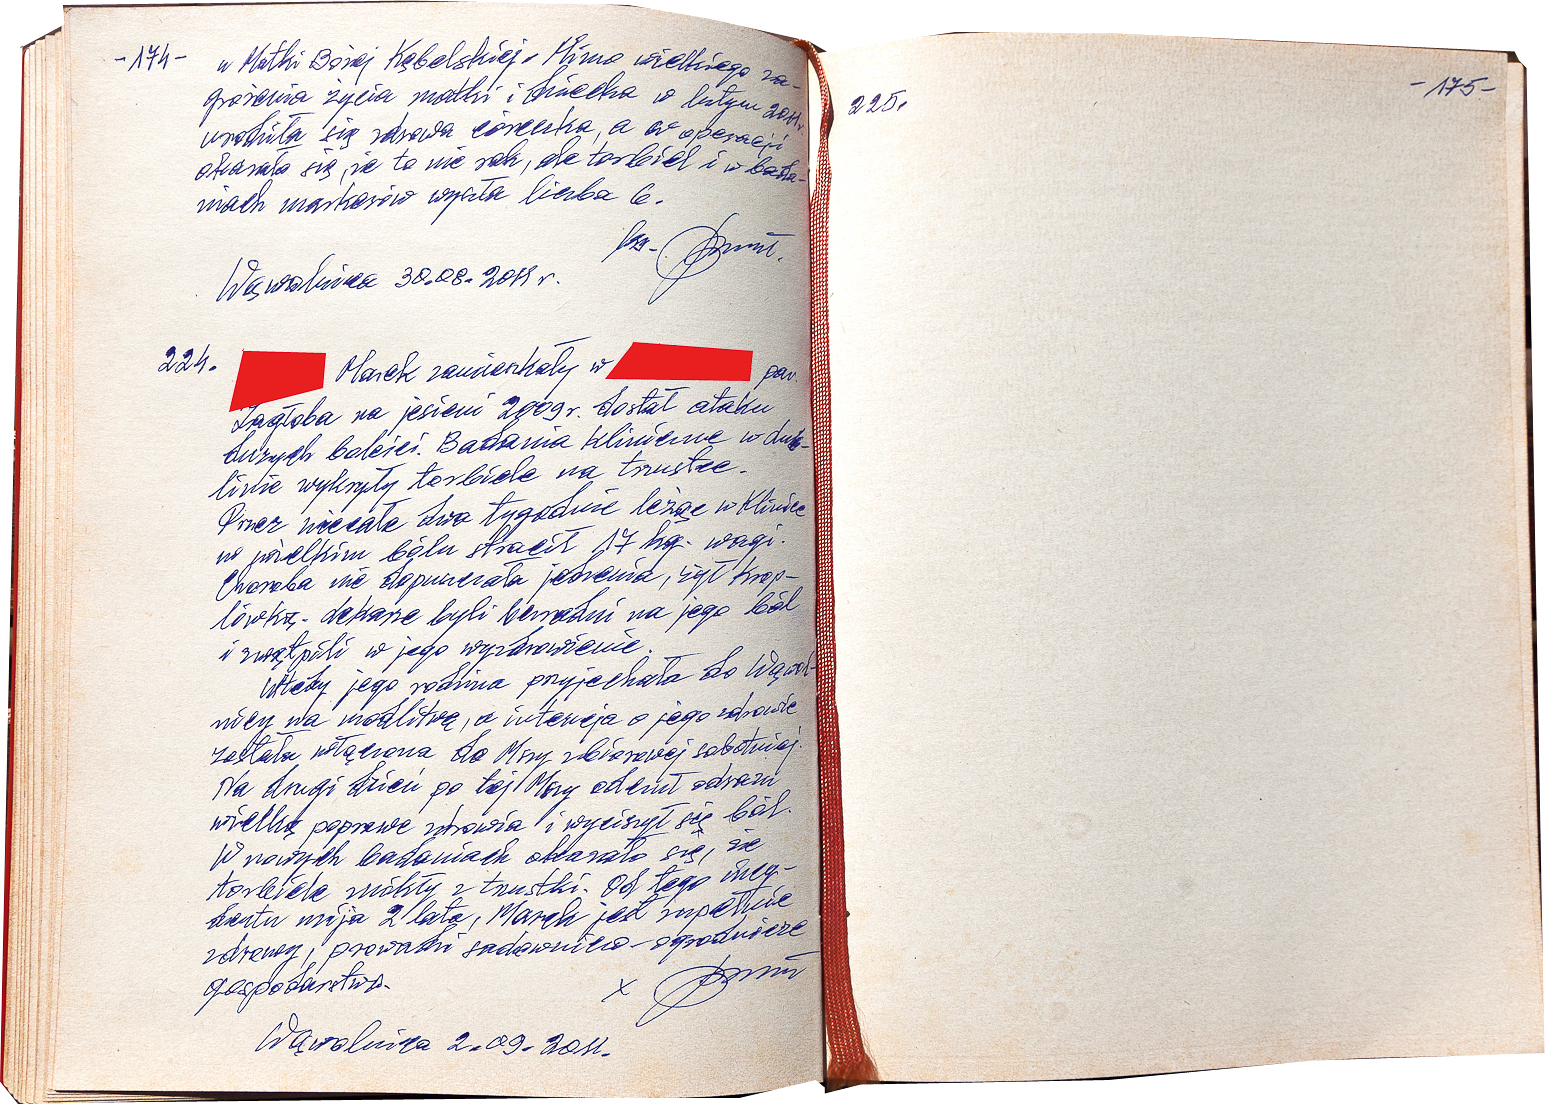 -174-
u Matki Bożej Kębelskiej. Mimo wielkiego za-
grożenia życia matki i dziecka w lutym 2011r.
urodziła się zdrowa córeczka, a w operacji
okazało się, że to nie rak, ale torbiel i w bada-
niach markerów wyszła liczba 6.
ks.
Wąwolnica 30.08.2011 r.
224.
Marek zamieszkały w pow.
Zagłoba na jesieni 2009 r. dostał ataku
dużych boleści. Badania kliniczne w Lub-
linie wykryły torbiele na trzustce.
Przez niecałe dwa tygodnie leżąc w Klinice
w wielkim bólu stracił 17 kg. wagi.
Choroba nie dopuszczała jedzenia, żył krop-
lówką. Lekarze byli bezradni na jego ból
i zwątpili w jego wyzdrowienie.
Wtedy jego rodzina przyjechała do Wąwol-
nicy na modlitwę, a intencja o jego zdrowie
została włączona do Mszy zbiorowej sobotniej.
Na drugi dzień po tej Mszy odczuł odrazu
wielką poprawę zdrowia i wyciszył się ból.
W nowych badaniach okazało się, że
torbiele znikły z trzustki. Od tego incy-
dentu mija 2 lata, Marek jest zupełnie
zdrowy, prowadzi sadowniczo-ogrodnicze
gospodarstwo.
x
Wąwolnica 2.09.2011.
-175-
225.